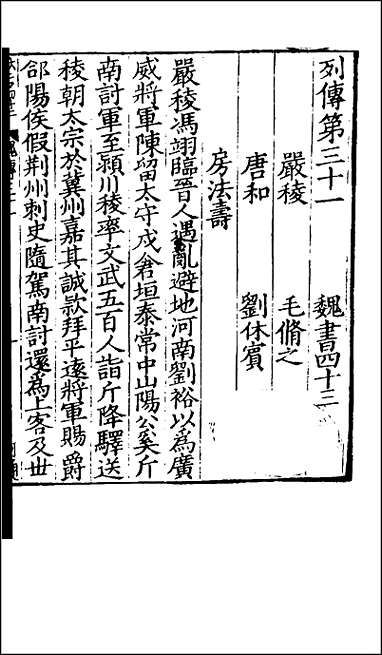 列傳第三十一　魏書四十三
嚴稜　毛脩之
唐和　劉休賓
房法壽
嚴稜馮翊臨晉人遇亂避地河南劉裕以爲廣
威將軍陳留太守戍倉垣泰常中山陽公奚斤
南討軍至潁川稜率文武五百人詣斤降驛送
稜朝太宗於冀州嘉其誠款拜平遠將軍賜爵
郃陽侯假荆州刺史隨駕南討還為上客及世